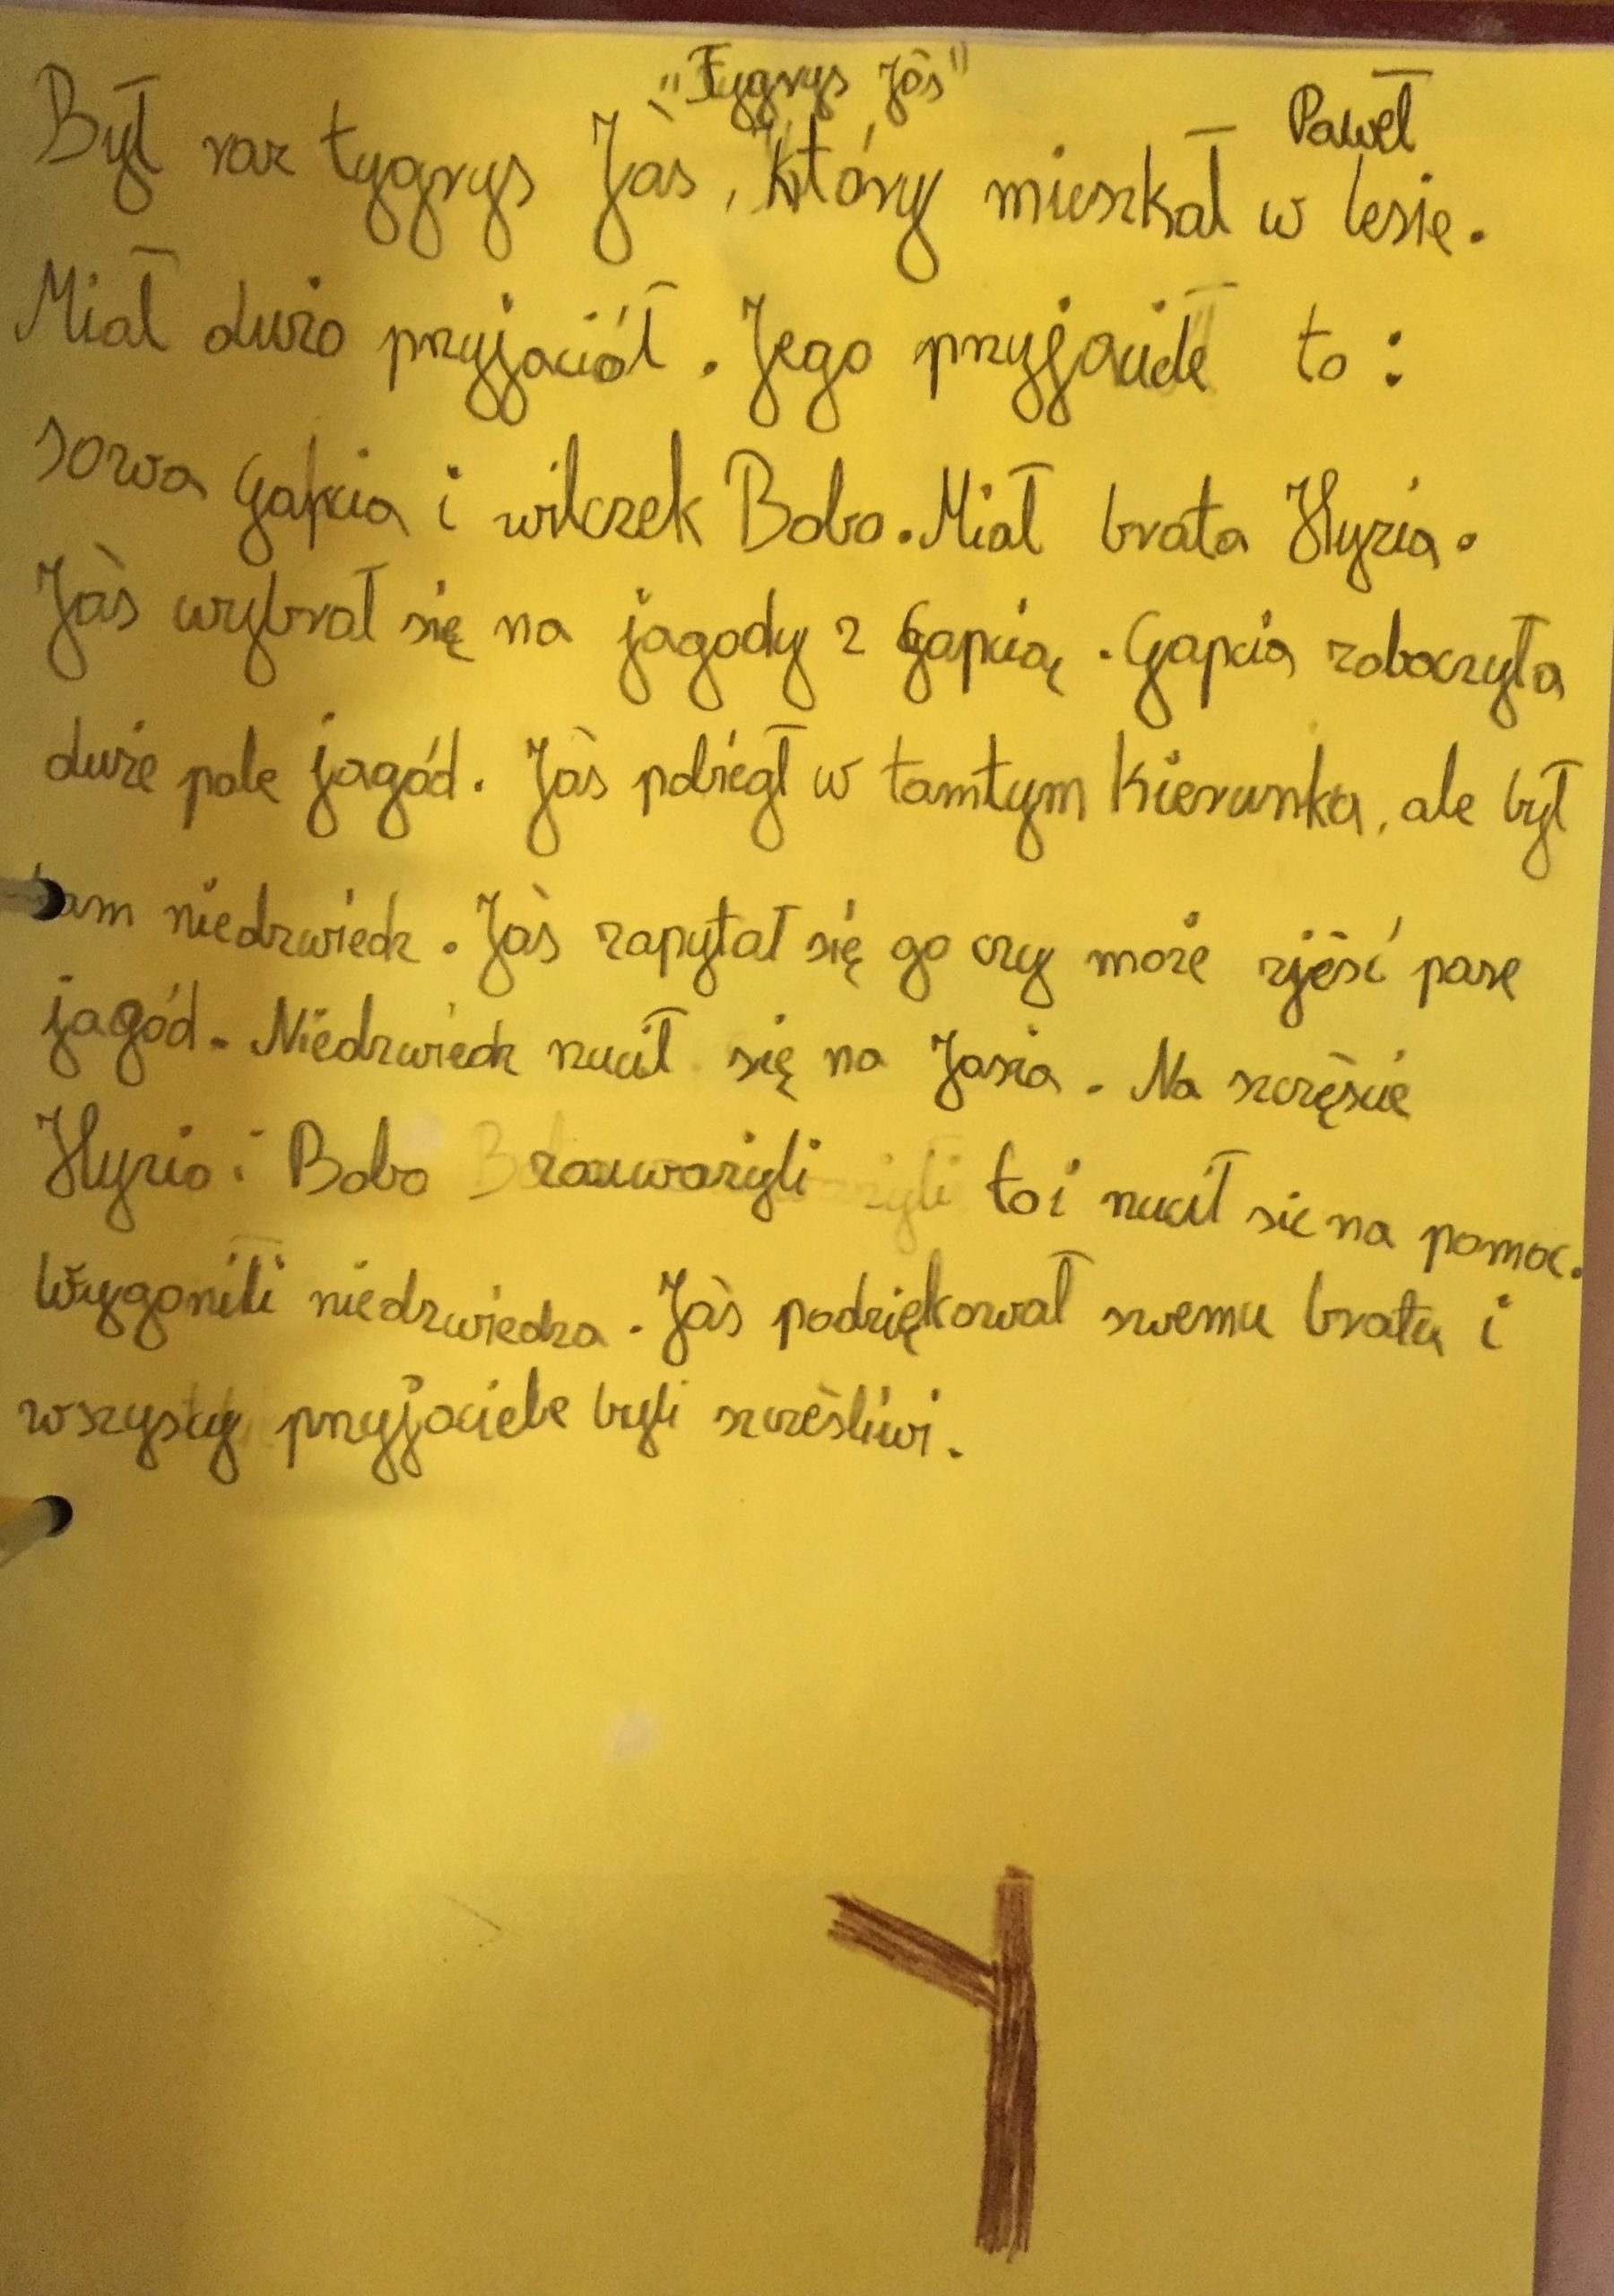 "Tygrys Jaś"
Paweł
Był raz tygrys Jaś, który mieszkał w lesie.
Miał dużo przyjaciół. Jego przyjaciele to:
sowa Gapcia i wilczek Bobo. Miał brata Hyzia.
Jaś wybrał się na jagody z Gapcią. Gapcia zobaczyła
duże pole jagód. Jaś pobiegł w tamtym kierunku, ale był
tam niedzwiedz. Jaś zapytał się go czy może zjeść parę
jagód. Niedzwiedz rzucił się na Jasia. Na szczęście
Hyzio i Bobo zauważyli to i rzucił sie na pomoc.
Wygonili niedzwiedza. Jaś podziękował swemu bratu i
wszyscy przyjaciele byli szcześliwi.